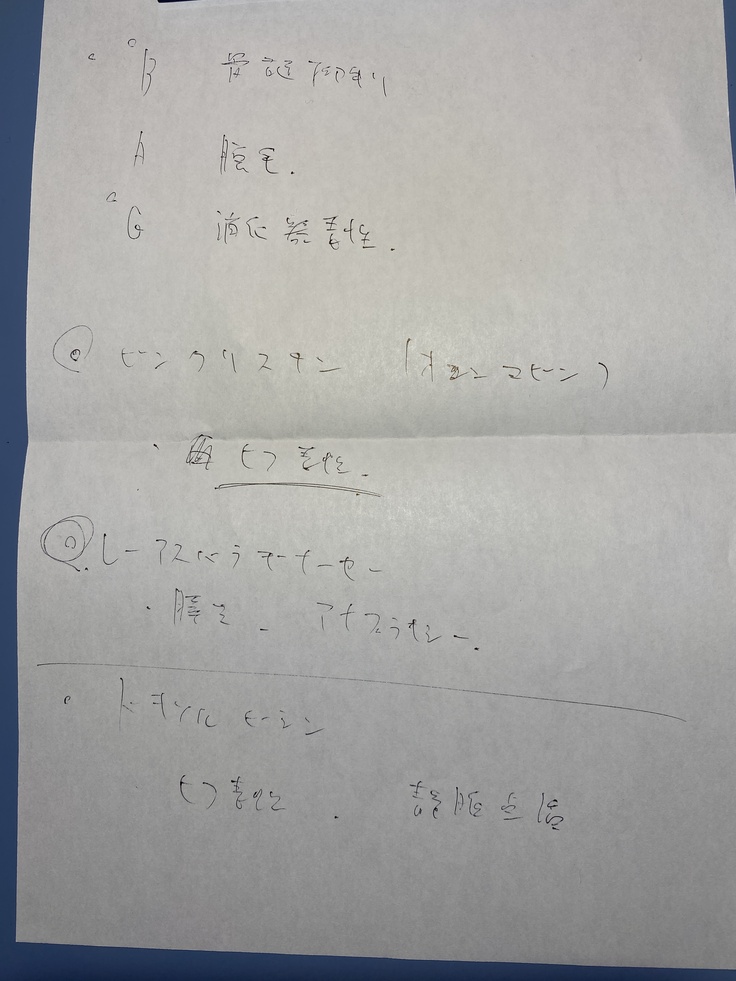 B 骨髄抑制
A 脱毛.
G 消化器毒性.
ビンクリスチン (オンコビン)
・心毒性.
L-アスパラギナーゼ
・膵炎. アナフィラキシー.
・ドキソルビシン
心毒性. 静脈